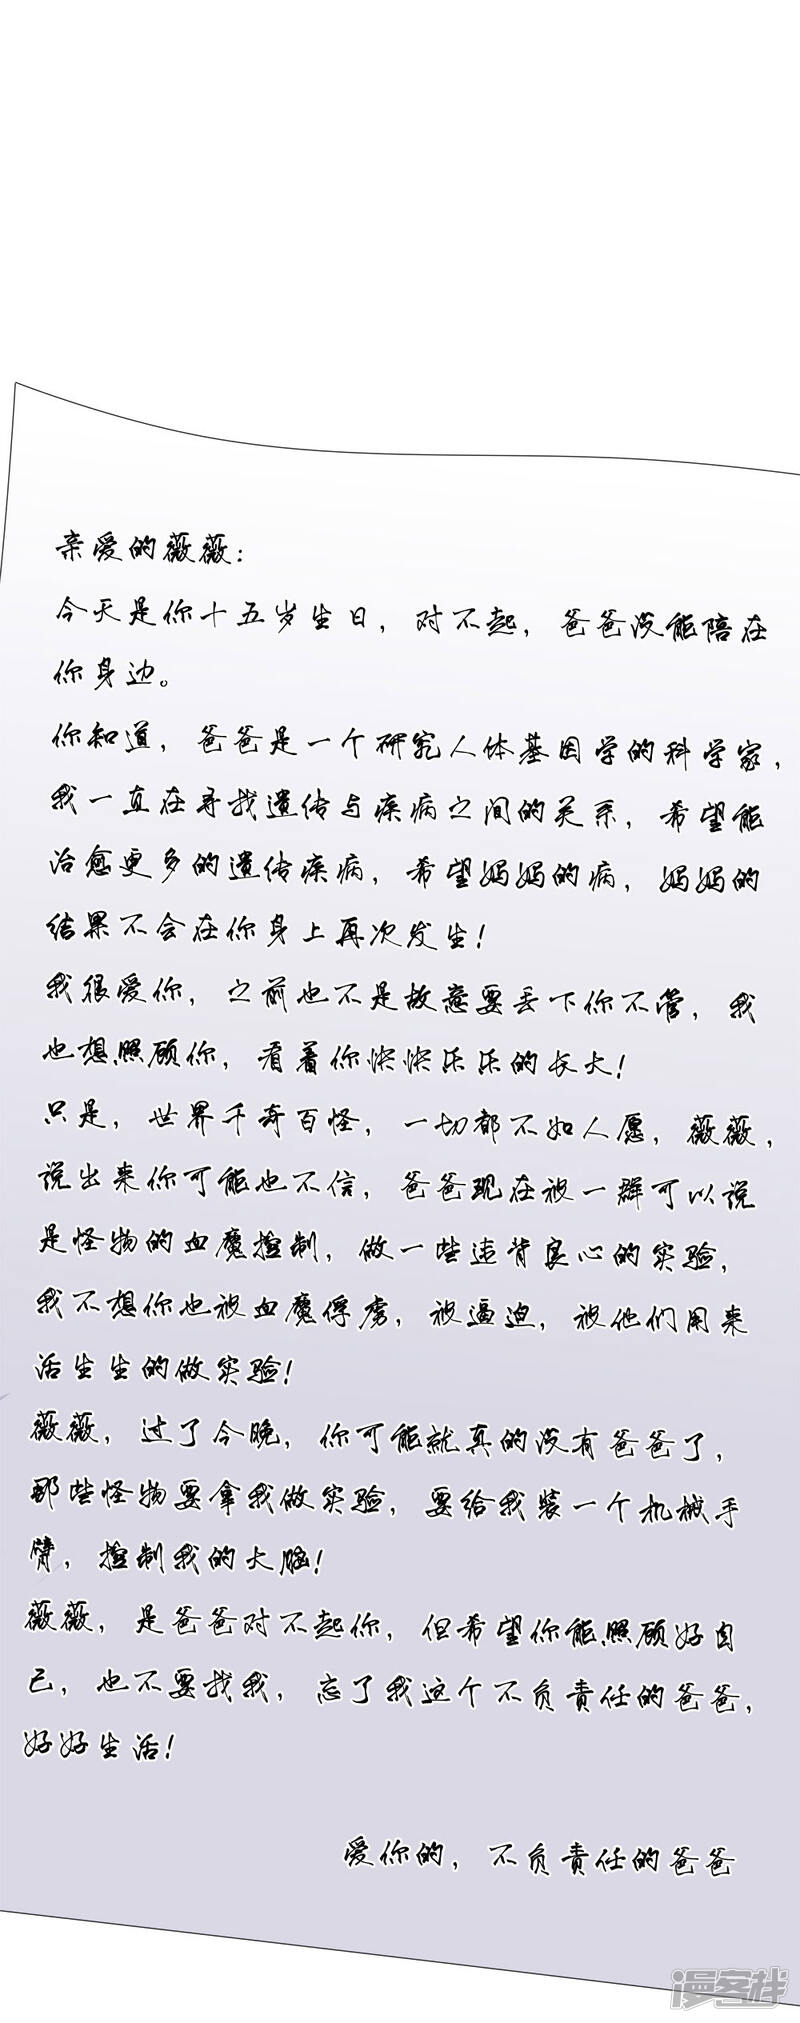 亲爱的薇薇：
今天是你十五岁生日，对不起，爸爸没能陪在
你身边。
你知道，爸爸是一个研究人体基因学的科学家，
我一直在寻找遗传与疾病之间的关系，希望能
治愈更多的遗传疾病，希望妈妈的病，妈妈的
结果不会在你身上再次发生！
我很爱你，之前也不是故意要丢下你不管，我
也想照顾你，看着你快快乐乐的长大！
只是，世界千奇百怪，一切都不如人愿，薇薇，
说出来你可能也不信，爸爸现在被一群可以说
是怪物的血魔控制，做一些违背良心的实验，
我不想你也被血魔俘虏，被逼迫，被他们用来
活生生的做实验！
薇薇，过了今晚，你可能就真的没有爸爸了，
那些怪物要拿我做实验，要给我装一个机械手
臂，控制我的大脑！
薇薇，是爸爸对不起你，但希望你能照顾好自
己，也不要找我，忘了我这个不负责任的爸爸，
好好生活！
爱你的，不负责任的爸爸
漫客栈